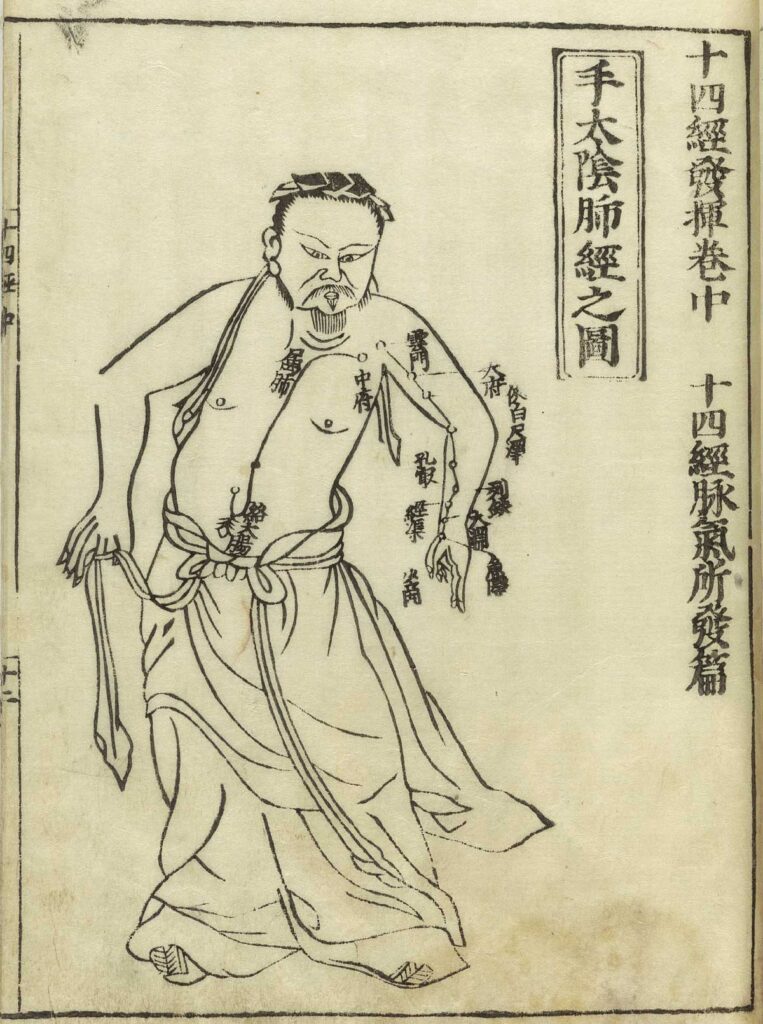 十四經發揮卷中　十四經脉氣所發篇
手太陰肺經之圖
雲門
天府
俠白
尺澤
中府
屬肺
孔最
列缺
經渠
大淵
魚際
少商
絡大腸
十四經中
十二